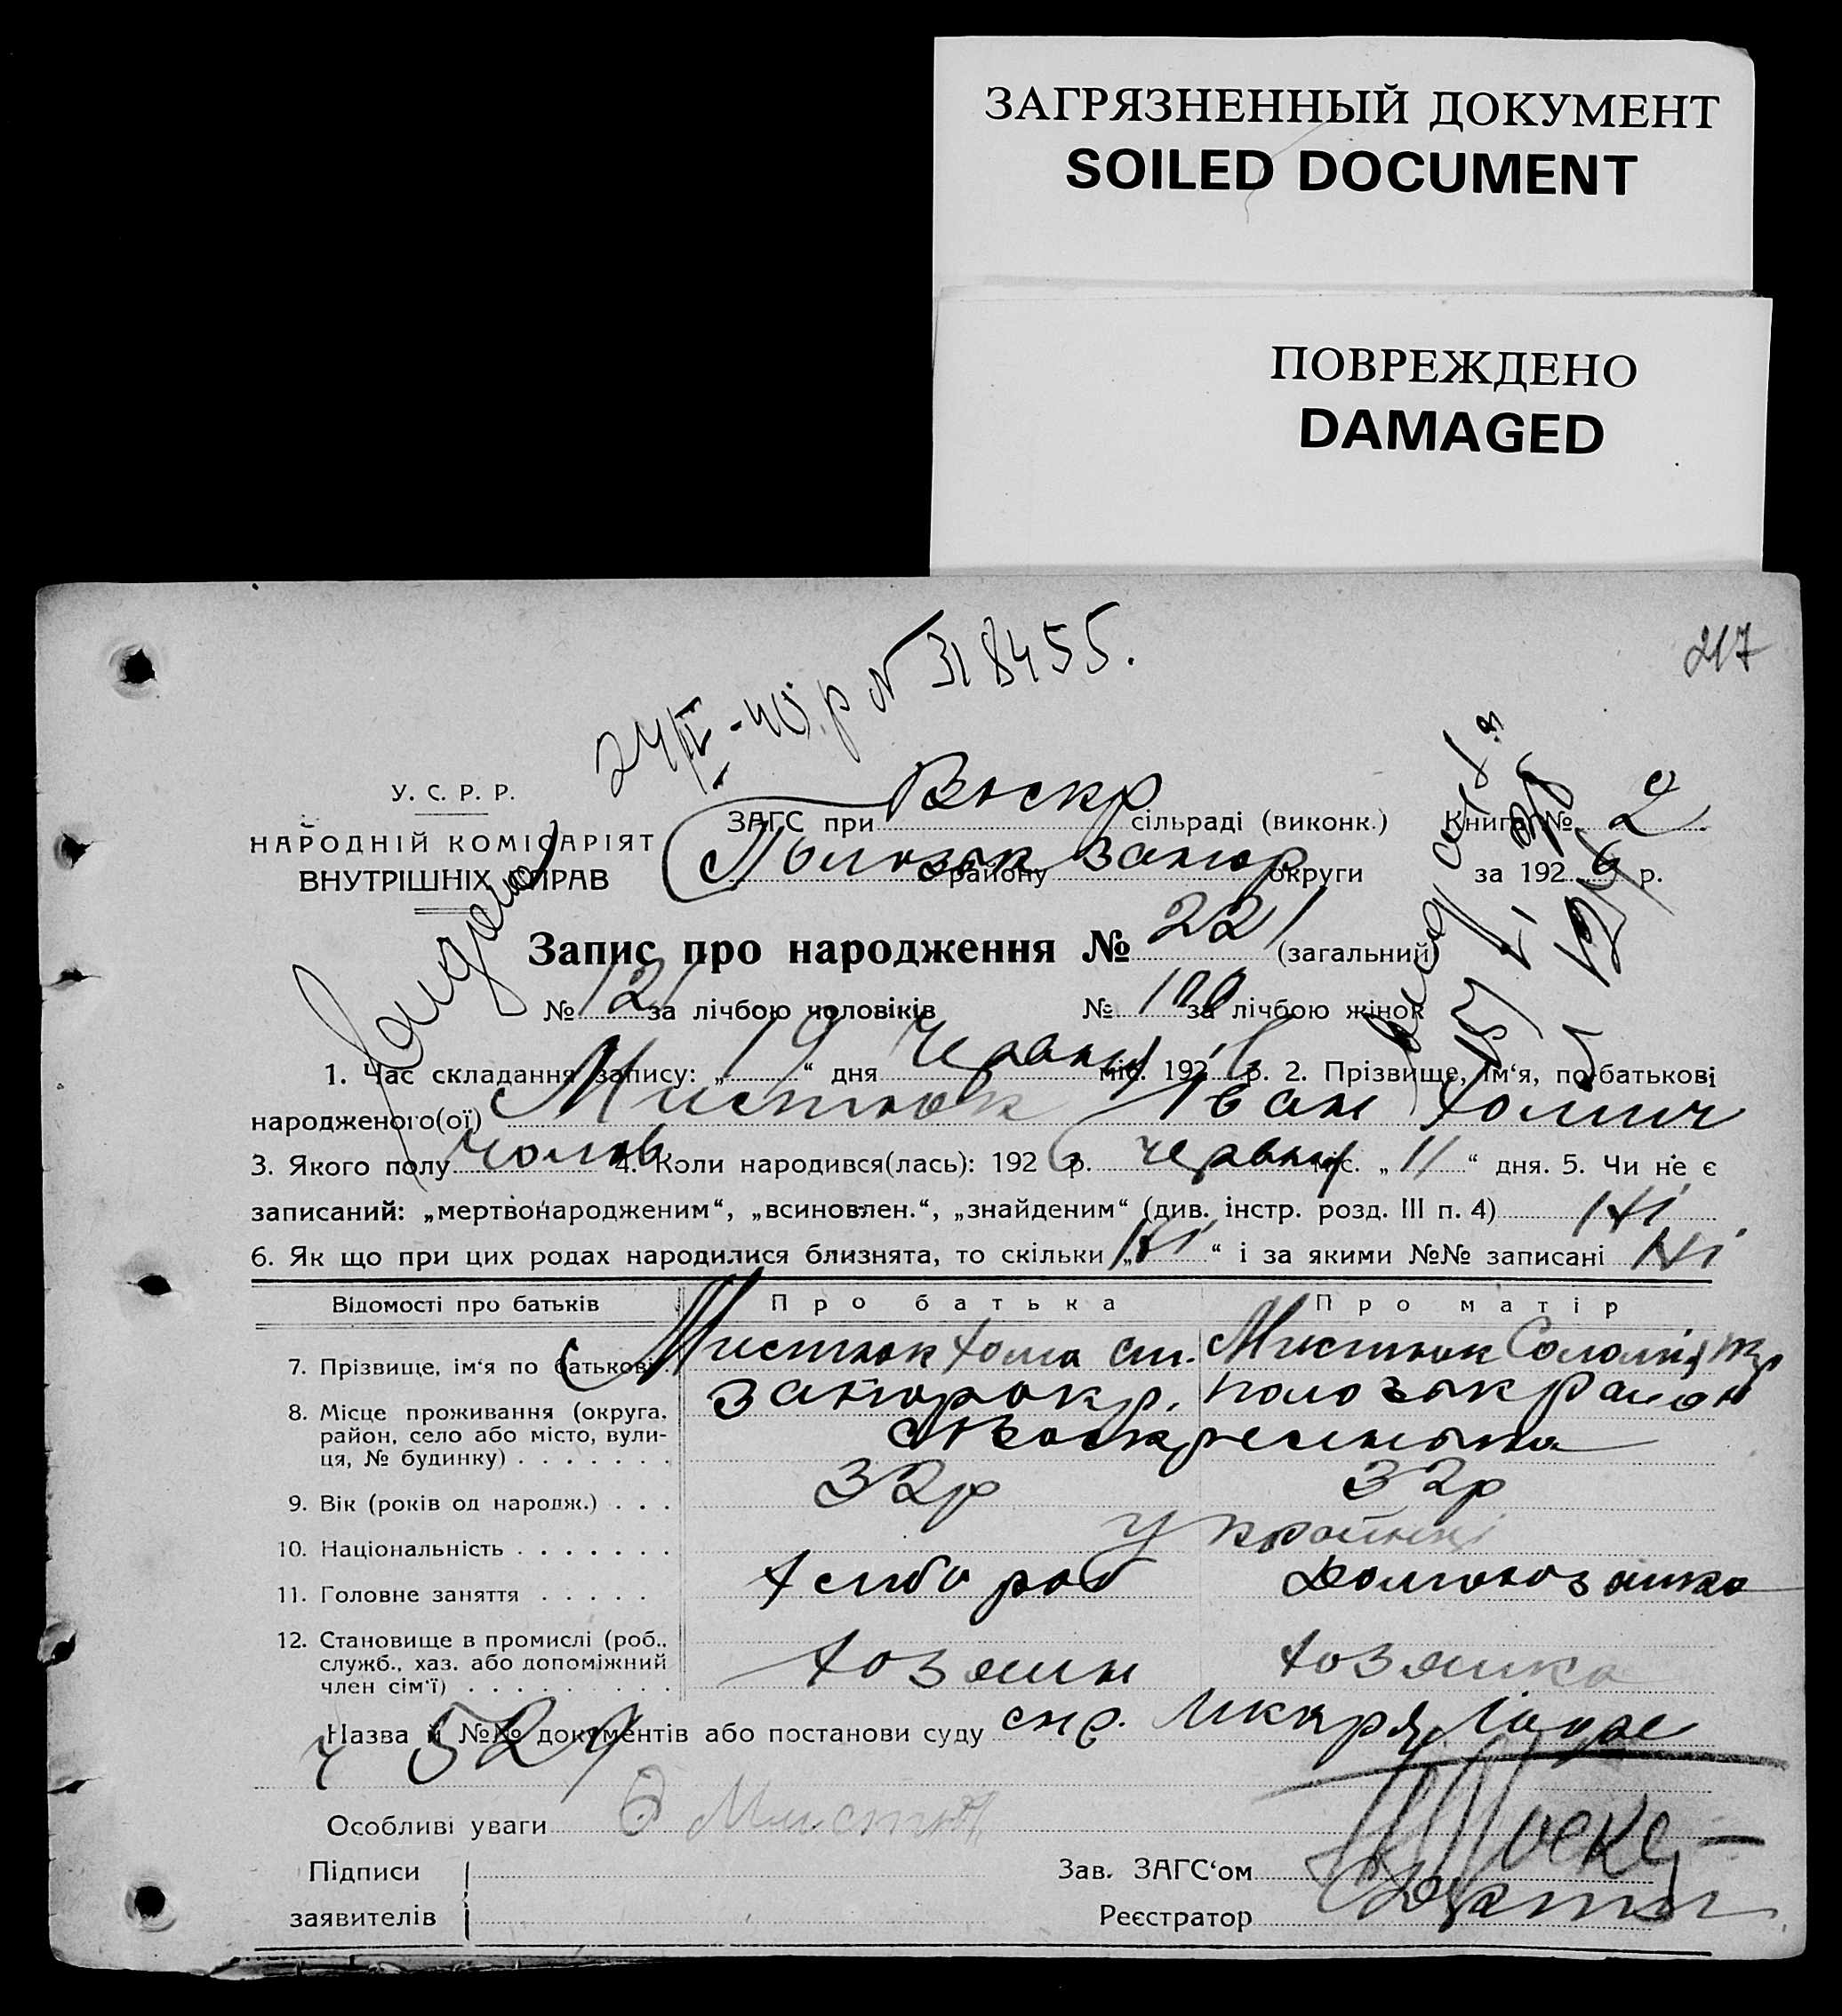 ЗАГРЯЗНЕННЫЙ ДОКУМЕНТ
SOILED DOCUMENT
ПОВРЕЖДЕНО
DAMAGED
217
24/IV-40.р N 318455.
У. С. Р. Р.
НАРОДНІЙ КОМІСАРІЯТ
ВНУТРІШНІХ СПРАВ
ЗАГС при Воскр сільраді (виконк.) Книга № 2
району Запор округи за 1926 р.
Запис про народження № 221 (загальний)
№ 121 за лічбою чоловіків № 100 за лічбою жінок
1. Час складання запису: „19“ дня Червня міс. 1926 р. 2. Прізвище, ім‘я, по батькові
народженого(ої) Мистюк Іван Хомич
3. Якого полу чолов. 4. Коли народився(лась): 1926 р. червня міс. „11“ дня. 5. Чи не є
записаний: „мертвонародженим“, „всиновлен.“, „знайденим“ (див. інстр. розд. III п. 4) Ні
6. Як що при цих родах народилися близнята, то скільки „Ні“ і за якими №№ записані Ні
Відомості про батьків Про батька Про матір
7. Прізвище, ім‘я по батькові. Мистюк Хома Мистюк Соломія
8. Місце проживання (округа, район, село або місто, вулиця, № будинку) . . . . . . . Запорокр. район
9. Вік (років од народж.) . . . 32р 32р
10. Національність . . . . . . . Українці
11. Головне заняття . . . . . Хлибороб Домохозяйка
12. Становище в промислі (роб., служб., хаз. або допоміжний член сім‘ї) . . . . . . . . . Хозяин Хозяйка
Назва й №№ документів або постанови суду
529
Особливі уваги
Підписи
заявителів
Зав. ЗАГС‘ом
Реєстратор